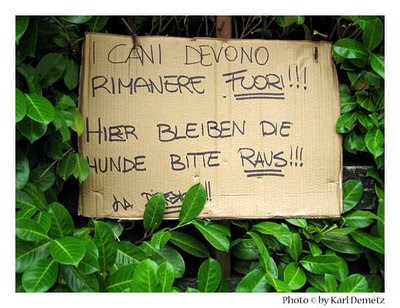 I CANI DEVONO
RIMANERE FUORI!!!
HIER BLEIBEN DIE
HUNDE BITTE RAUS!!!
Photo © by Karl Demetz